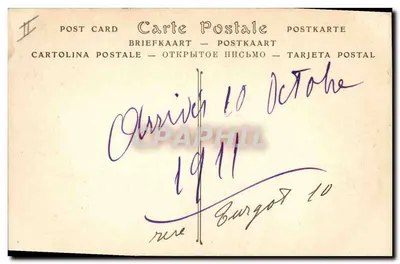 II
POST CARD Carte Postale POSTKARTE
BRIEFKAART — POSTKAART
CARTOLINA POSTALE — ОТКРЫТОЕ ПИСЬМО — TARJETA POSTAL
Arrivés 10 Octobre
1911
rue Turgot 10